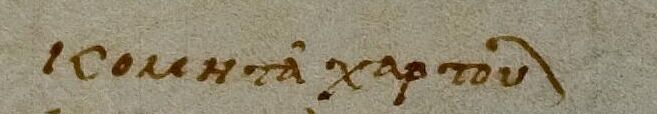 κομητᾶ χαρτου